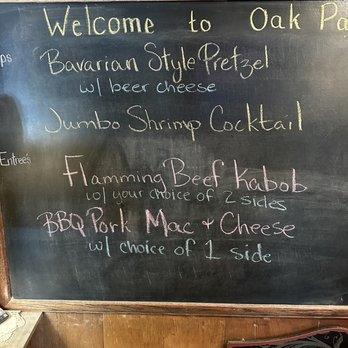 Welcome to Oak Pa
ps
Bavarian Style Pretzel
w/ beer cheese
Jumbo Shrimp Cocktail
Entree's
Flamming Beef Kabob
w/ your choice of 2 sides
BBQ Pork Mac + Cheese
w/ choice of 1 side